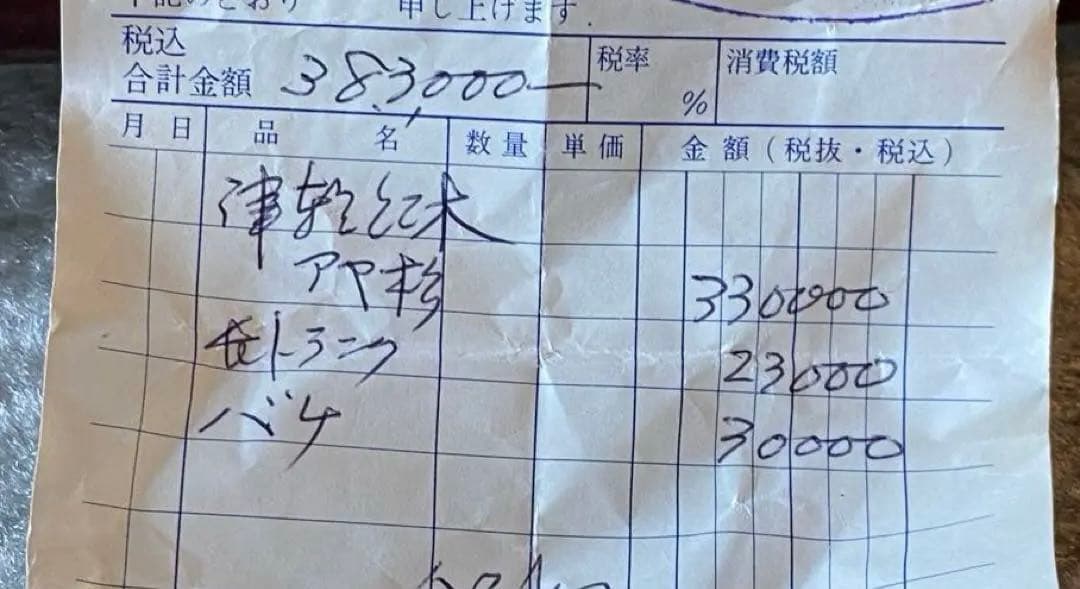 申し上げます.
税込
合計金額 383,000— 税率 % 消費税額
月 日 品 名 数量 単価 金額（税抜・税込）
津軽紅木
アヤ杉 330000
長トランク 23000
バチ 30000